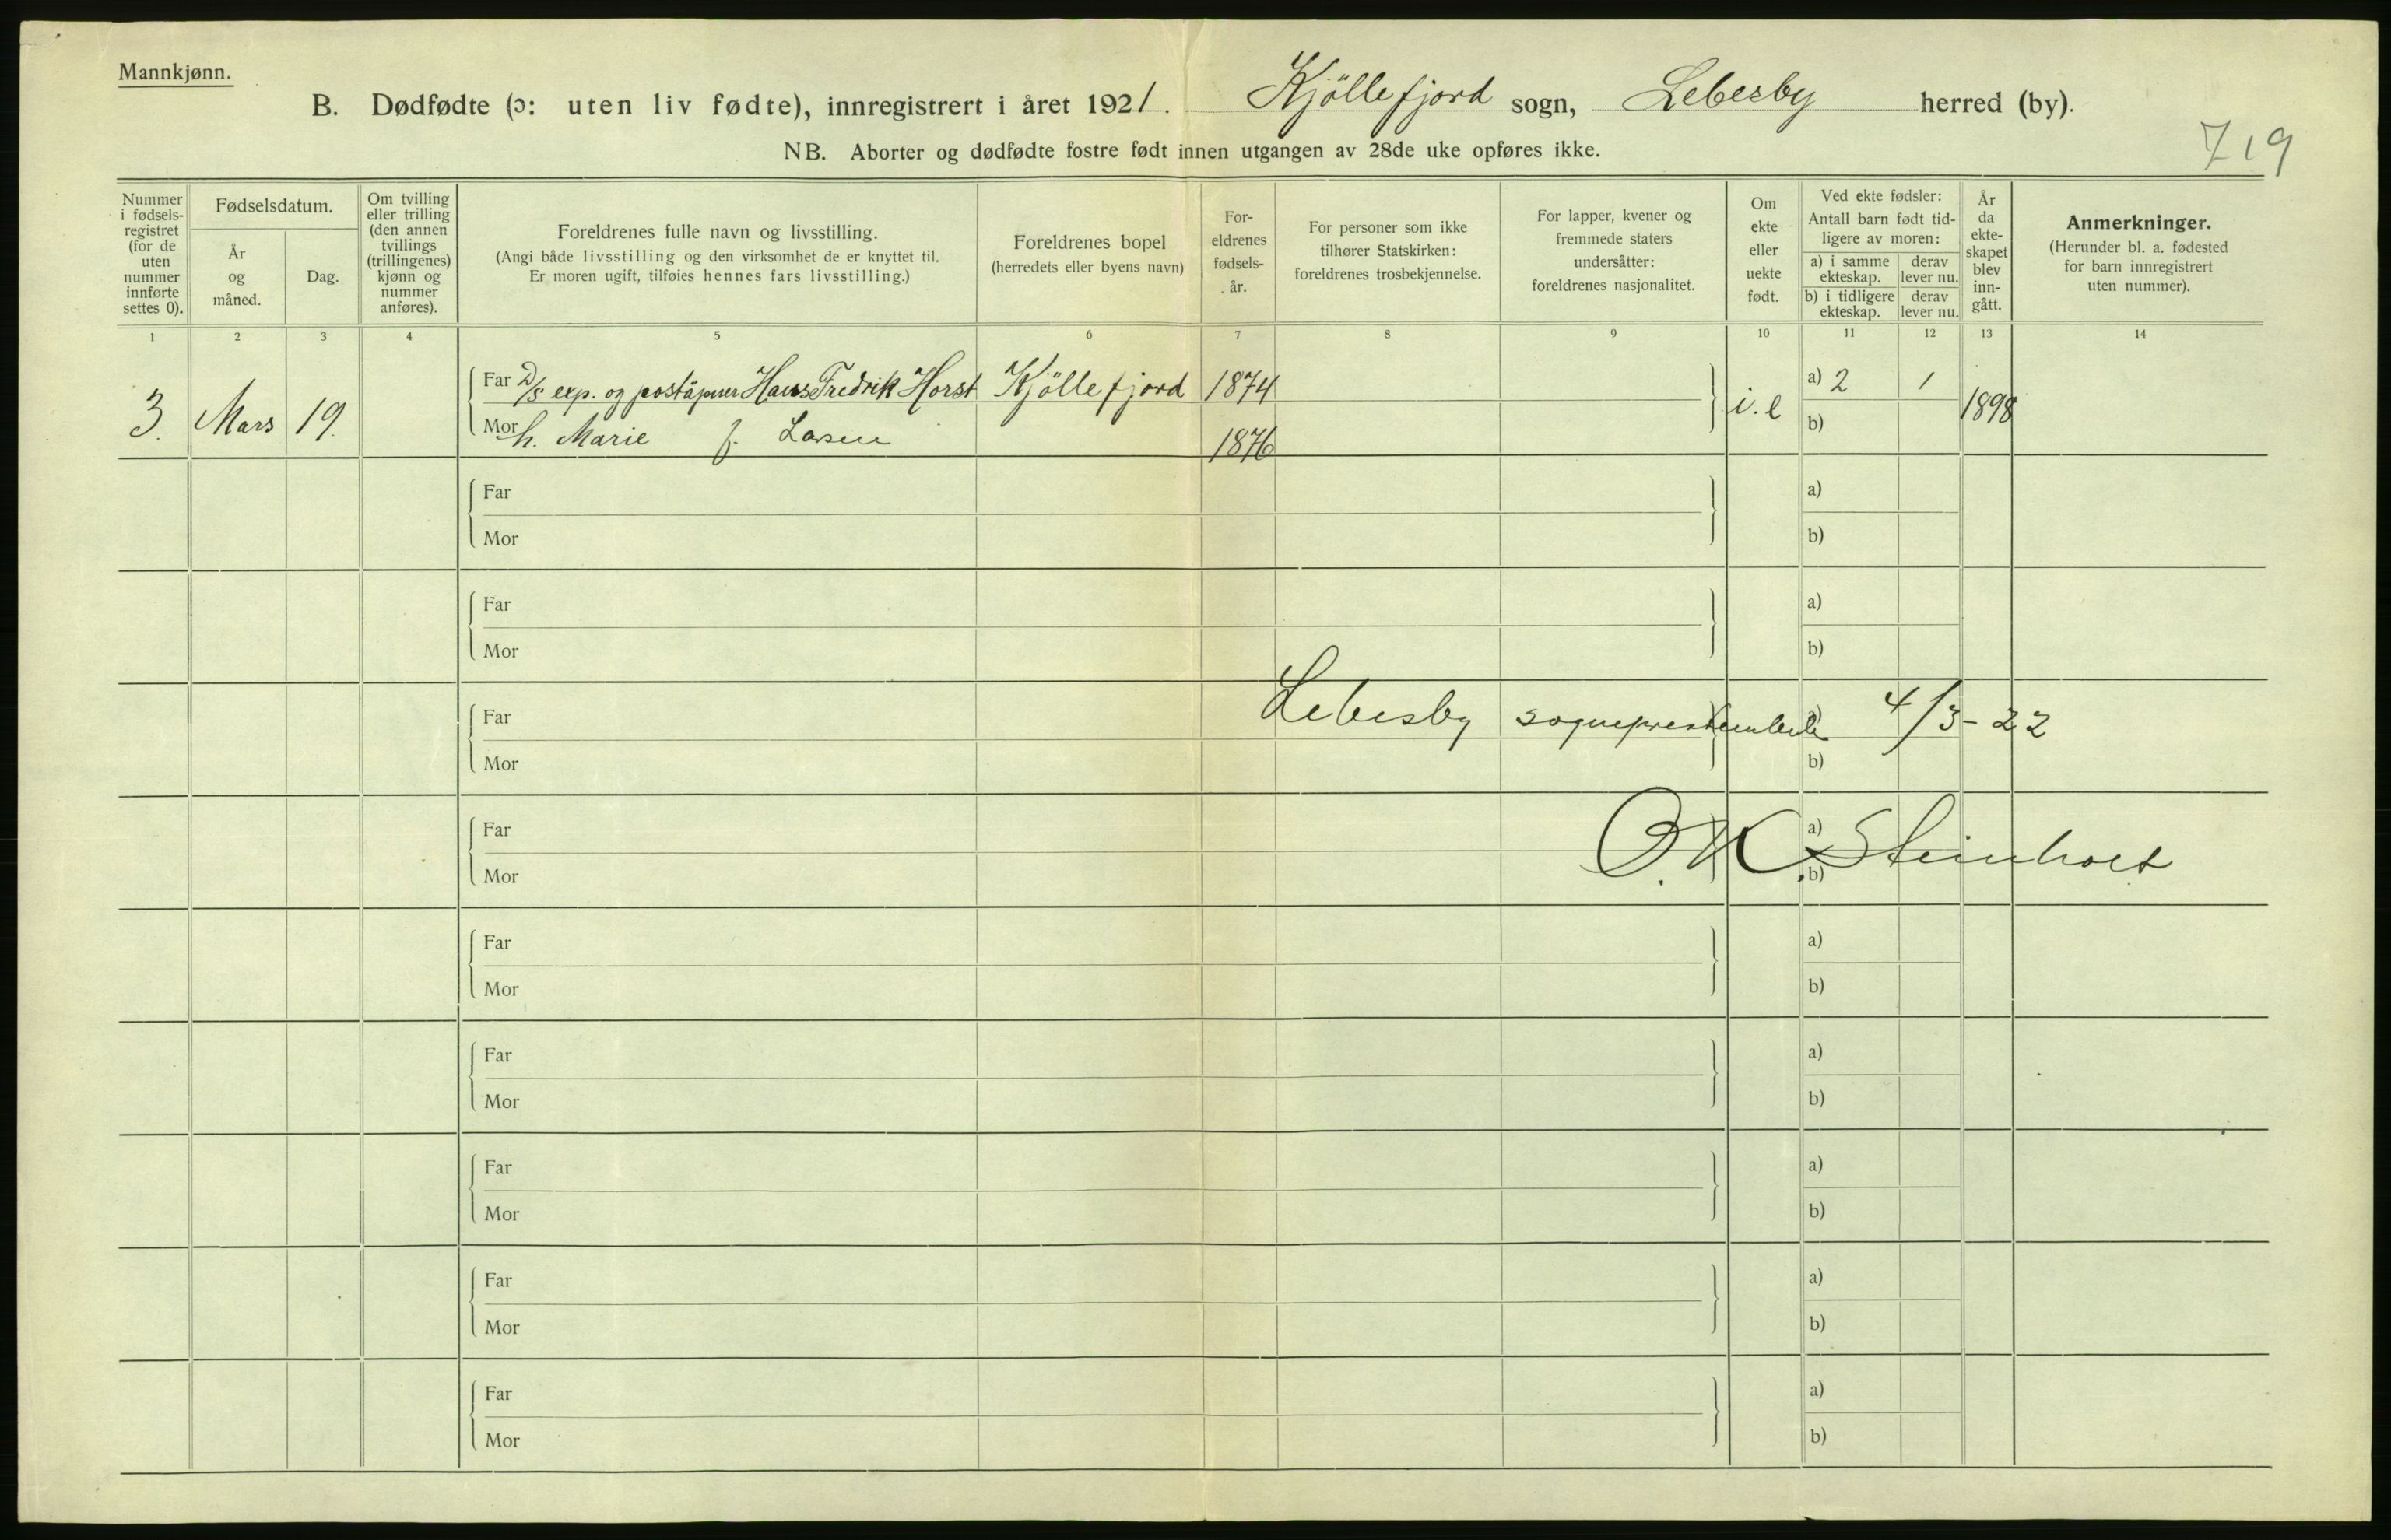 Mannkjønn.
B. Dødfødte (ɔ: uten liv fødte), innregistrert i året 1921. Kjöllefjord sogn, Lebesby herred (by).
719
NB. Aborter og dødfødte fostre født innen utgangen av 28de uke opføres ikke.
Nummer i fødsels-registret (for de uten nummer innførte settes 0).
Fødselsdatum.
År og måned.
Dag.
Om tvilling eller trilling (den annen tvillings (trillingenes) kjønn og nummer anføres).
Foreldrenes fulle navn og livsstilling.
(Angi både livsstilling og den virksomhet de er knyttet til.
Er moren ugift, tilføies hennes fars livsstilling.)
Foreldrenes bopel
(herredets eller byens navn)
For-eldrenes fødsels-år.
For personer som ikke tilhører Statskirken: foreldrenes trosbekjennelse.
For lapper, kvener og fremmede staters undersåtter: foreldrenes nasjonalitet.
Om ekte eller uekte født.
Ved ekte fødsler: Antall barn født tid-ligere av moren:
a) i samme ekteskap. derav lever nu.
b) i tidligere ekteskap. derav lever nu.
År da ekte-skapet blev inn-gått.
Anmerkninger.
(Herunder bl. a. fødested for barn innregistrert uten nummer).
1 2 3 4 5 6 7 8 9 10 11 12 13 14
3. Mars 19. Far D/s exp. og poståpner Hans Fredrik Horst Kjöllefjord 1874 i. e a) 2 1 1898
Mor h. Marie f. Larsen 1876 b)
Far a)
Mor b)
Far a)
Mor b)
Far Lebesby sogneprestembede a) 4/3-22
Mor b)
Far O. K. Steinholt a)
Mor b)
Far a)
Mor b)
Far a)
Mor b)
Far a)
Mor b)
Far a)
Mor b)
Far a)
Mor b)